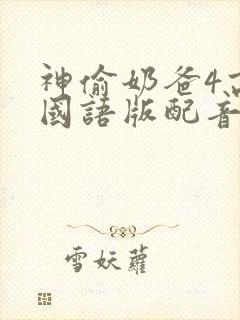 神偷奶爸4高
國語版配音
雪妖蘿